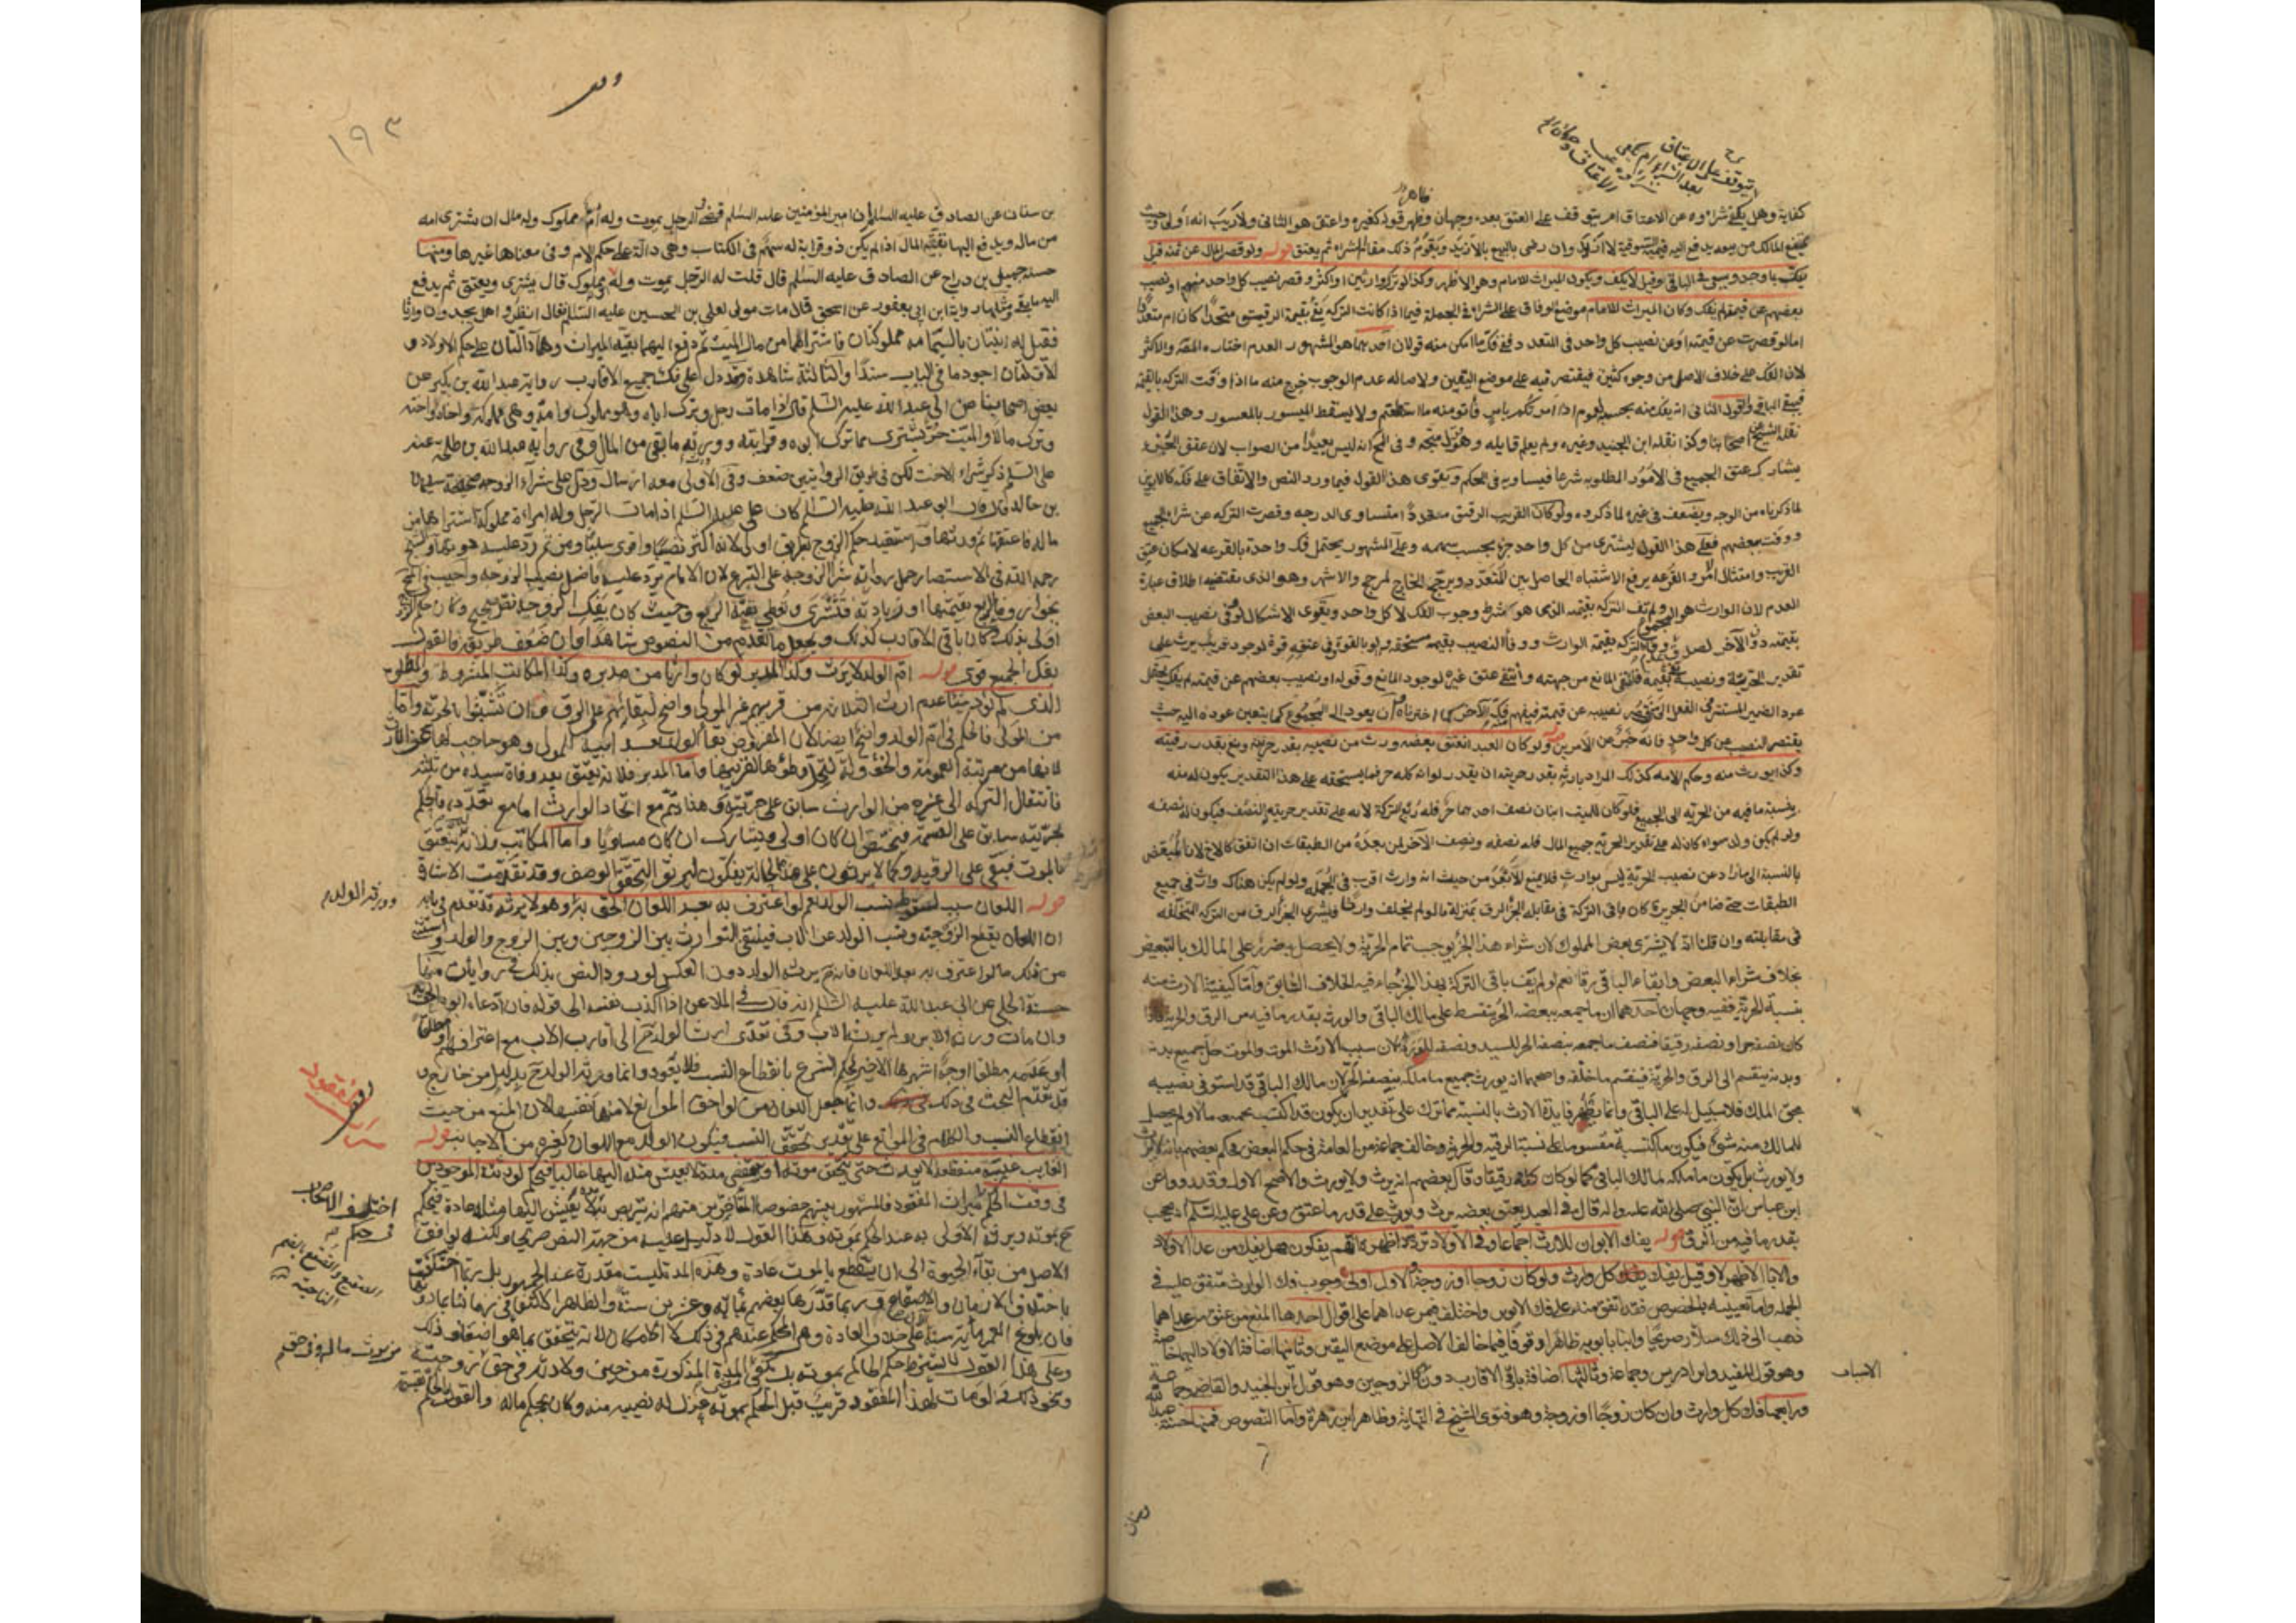 يتوقف على الاعتاق
بعد الشراء ام يكفي
كفاية وهل يكفي شراؤه عن الاعتاق ام يتوقف على العتق بعده وجهان وظهر قوله كغيره واعتق هو الثاني ولا ريب انه اولى وحيث
يمتنع المالك من بيعه يدفع اليه قيمته السوقية لا ازيد وان رضي بالبيع بالازيد ويقوم ذلك مقام الشراء ثم يعتق قوله ولو قصر المال عن ثمنه قيل
يفك بما وجد ويسعى في الباقي وقيل لا يفك ويكون الميراث للامام وهو الاظهر وكذا لو ترك وارثين او اكثر وقصر نصيب كل واحد منهم او نصيب
بعضهم عن قيمته لم يفك وكان الميراث للامام موضع الوفاق على الشراء في الجملة فيما اذا كانت التركة تفي بقيمة الرقيق متحدا كان ام متعددا
اما لو قصرت عن قيمته او عن نصيب كل واحد في المتعدد ففي فك ما امكن منه قولان احدهما وهو المشهور العدم اختاره المصنف والاكثر
لان الفك على خلاف الاصل من وجوه كثيرة فيقتصر فيه على موضع اليقين ولاصالة عدم الوجوب خرج منه ما اذا وفت التركة بالقيمة
فيبقى الباقي والقول الثاني انه يفك منه بحسبه لعموم اذا امرتكم بامر فأتوا منه ما استطعتم ولا يسقط الميسور بالمعسور وهذا القول
نقله الشيخ عن اصحابنا وكذا نقله ابن الجنيد وغيره ولم يعلم قايله وهو متجه وفي المختلف انه ليس بعيدا من الصواب لان عتق الجزء
يشارك عتق الجميع في الامور المطلوبة شرعا فيساويه في الحكم ويقوى هذا القول فيما ورد النص والاتفاق على فكه كالابوين
لما ذكرناه من الوجه ويضعف في غيره لما ذكروه ولو كان القريب الرقيق متعددا متساوي الدرجة وقصرت التركة عن شراء الجميع
ووفت ببعضهم فعلى هذا القول يشترى من كل واحد جزء بحسب سهمه وعلى المشهور يحتمل فك واحد بالقرعة لامكان عتق
القريب وامتثال الامر والقرعة يرفع الاشتباه الحاصل بين المتعدد ويرجح الخارج لمرجح والاشهر وهو الذي يقتضيه اطلاق عبارة
العدم لان الوارث هو المجموع ولم تف التركة بقيمته الذي هو شرط وجوب الفك لا كل واحد ويقوى الاشكال لو وفى نصيب البعض
بقيمته دون الآخر لصدق عدم وفاء التركة بقيمة الوارث ووفاء النصيب بقيمة مستحقه
تقدير الحرية ونصيبه يفي بقيمته فانتفى المانع من جهته وانتفى عتق غيره لوجود المانع وقوله او نصيب بعضهم عن قيمته لم يفك يحتمل
عود الضمير المستتر في الفعل الى من قصر نصيبه عن قيمته فيفهم فك الآخر كما اخترناه وان يعود الى المجموع كما يتعين عوده اليه حيث
يقتصر النصيب عن كل واحد فانه خبر عن الامرين قوله ولو كان العبد انعتق بعضه ورث من نصيبه بقدر حريته ومنع بقدر رقيته
وكذا يورث منه وحكم الامة كذلك المراد بارثه بقدر حريته ان يقدر لو انه كله حر فما يستحقه على هذا التقدير يكون له منه
بنسبة ما فيه من الحرية الى الجميع فلو كان للميت ابنان نصف احدهما حر فله ربع التركة لانه على تقدير حريته النصف فيكون له نصفه
ولو لم يكن ولد سواه كان له على تقدير الحرية جميع المال فله نصفه ونصف الآخر لمن بعده من الطبقات ان اتفق كالاخ لان المبعض
بالنسبة الى ما زاد عن نصيب الحرية ليس بوارث فلا يمنع الابعد من حيث انه وارث اقرب في الجملة ولو لم يكن هناك وارث في جميع
الطبقات حتى ضامن الجريرة كان باقي التركة في مقابلة الجزء الرق بمنزلة ما لو لم يخلف وارثا ويشترى الجزء الرق من التركة المتخلفة
في مقابلته وان قلنا انه لا يشترى بعض المملوك لان شراء هذا الجزء يوجب تمام الحرية ولا يحصل به ضرر على المالك بالتبعيض
بخلاف شراء البعض وابقاء الباقي رقا نعم لو لم يف باقي التركة بهذا الجزء جاء فيه الخلاف السابق واما كيفية الارث منه
بنسبة الحرية ففيه وجهان احدهما ان ما جمعه ببعضه الحر يتقسط على مالك الباقي والورثة بقدر ما فيه من الرق والحرية فاذا
كان نصفه حرا ونصفه رقيقا فنصف ما جمعه بنصفه الحر للسيد ونصفه للورثة لان سبب الارث الموت والموت حل جميع بدنه
وبدنه ينقسم الى الرق والحرية فينقسم ما خلفه واصحهما انه يورث جميع ما ملكه بنصفه الحر لان مالك الباقي قد استوفى نصيبه
بحق الملك فلا سبيل له على الباقي وانما يظهر فايدة الارث بالنسبة مما ترك على تقدير ان يكون قد اكتسبه بجميعه مالا ولم يحصل
للمالك منه شيء فيكون ما اكتسبه مقسوما على نسبة الرقية والحرية وخالف جماعة من العامة في حكم المبعض فحكم بعضهم بانه لا يرث
ولا يورث بل يكون ما ملكه لمالك الباقي كما لو كان كله رقيقا وقال بعضهم انه يرث ولا يورث والاصح الاول وقد رووا عن
ابن عباس ان النبي صلى الله عليه واله قال في العبد يعتق بعضه يرث ويورث على قدر ما عتق وعن علي عليه السلام انه يحجب
بقدر ما فيه من الرق قوله يفك الابوان للارث اجماعا وفي الاولاد تردد اظهره انهم يفكون وهل يفك من عدا الاولاد
والاباء الاظهر لا وقيل يفك كل وارث ولو كان زوجا او زوجة والاول اولى وجوب فك الوارث متفق عليه في
الجملة واما تعيينه بالخصوص فقد اتفق منه على فك الابوين واختلف فيمن عداهما على اقوال احدها المنع من عتق من عداهما
ذهب الى ذلك سلار صريحا وابنا بابويه ظاهرا وقوفا فيما خالف الاصل على موضع اليقين وثانيها اضافة الاولاد اليهما خاصة
وهو قول المفيد وابن ادريس وجماعة وثالثها اضافة باقي الاقارب دون الزوجين وهو قول ابن الجنيد والقاضي وجماعة
ورابعها فك كل وارث وان كان زوجا او زوجة وهو فتوى الشيخ في النهاية وظاهر ابن زهرة واما النصوص فمنها حسنة
الانساب
١٩٣
بن سنان عن الصادق عليه السلام ان امير المؤمنين عليه السلام قضى في الرجل يموت وله ام مملوكة وله مال ان تشترى امه
من ماله ويدفع اليها بقية المال اذا لم يكن ذو قرابة له سهم في الكتاب وهي دالة على حكم الام وفي معناها غيرها ومنها
حسنة جميل بن دراج عن الصادق عليه السلام قال قلت له الرجل يموت وله ابن مملوك قال يشترى ويعتق ثم يدفع
اليه ما بقي ومثلها رواية ابن ابي يعفور عن اسحق قال مات مولى لعلي بن الحسين عليه السلام فقال انظروا هل تجدون وارثا
فقيل له ابنتان باليمامة مملوكتان فاشتراهما من مال الميت ثم دفع اليهما بقية الميراث وهما دالتان على حكم الاولاد و
الاوليان اجود ما في الباب سندا والثالثة شاهدة وقد دل على فك جميع الاقارب رواية عبد الله بن بكير عن
بعض اصحابنا عن ابي عبد الله عليه السلام قال اذا مات رجل وترك اباه وهو مملوك او امه وهي مملوكة او اخاه او اخته
وترك مالا والميت حر يشترى مما ترك ابوه او قرابته وورث ما بقي من المال وفي رواية عبد الله بن طلحة عنه
عليه السلام ذكر شراء الاخت لكن في طريق الروايتين ضعف وفي الاولى معه ارسال ودل على شراء الزوجة صحيحة سليمان
بن خالد قال قال ابو عبد الله عليه السلام كان علي عليه السلام اذا مات الرجل وله امراة مملوكة اشتراها من
ماله فاعتقها ثم ورثها واستفيد حكم الزوج بطريق اولى لانه اكثر نصيبا واقوى سببا ومن ثم رد عليه دونها والشيخ
رحمه الله في الاستبصار حمل رواية شراء الزوجة على التبرع لان الامام يرد عليه فاضل نصيب الزوجة واجيب
بجواز وفاء الربع بقيمتها او زيادته فتشترى وتعطى بقية الربع وحيث كان بفك الزوجة نص صحيح وكان حكم الزوج
اولى بذلك كان باقي الاقارب كذلك ويجعل ما تقدم من النصوص شاهدا وان ضعف طريقه فالقول
بفك الجميع قوى قوله ام الولد لا يرث وكذا المدبر لو كان وارثا من مدبره وكذا المكاتب المشروط والمطلق
الذي لم يؤد شيئا عدم ارث الثلاثة من قريبهم غير المولى واضح لبقائهم على الرق وان تشبثوا بالحرية واما
من المولى فالحكم في ام الولد وانتفاء ايضا لان المفروض بقاء الولد بعد ابيه المولى وهو حاجب لها عن الارث
لانها من مرتبة العمومة والخؤولة ليحل وطؤها لقريبها واما المدبر فلانه يعتق بعد وفاة سيده من ثلثه
فانتقال التركة الى غيره من الوارث سابق على حريته وهذا يتم مع اتحاد الوارث اما مع تعدده فالحكم
بحريته سابق على القسمة فيختص ان كان اولى ويشارك ان كان مساويا واما المكاتب فلانه لا يعتق
بالموت فيبقى على الرقية وكما لا يرثون على هذه الحالة يفكون ليرثوا لتحقق الوصف وقد تقدمت الاشارة
قوله اللعان سبب لسقوط نسب الولد نعم لو اعترف به بعد اللعان الحق به وهو لا يرثه قد تقدم في بابه
ان اللعان يقطع الزوجية ونسب الولد عن الاب فينتفي التوارث بين الزوجين وبين الزوج والولد واستثنى
من ذلك ما لو اعترف به بعد اللعان فانه يرثه الولد دون العكس لورود النص بذلك في روايات منها
حسنة الحلبي عن ابي عبد الله عليه السلام انه قال في الملاعن اذا اكذب نفسه الى قوله فان ادعاه ابوه الحق به
وان مات ورثه الابن ولم يرثه الاب وفي تعدي ارث الولد ح الى اقارب الاب مع اعترافهم او مطلقا
او عدمه مطلقا اوجه اشهرها الاخير لحكم الشرع بانقطاع النسب فلا يعود وانما ورثه الولد ح بدليل من خارج و
قد تقدم البحث في ذلك وانما جعل اللعان من لواحق الموانع لا منها نفسها لان المنع من حيث
انقطاع النسب والكلام في الموانع على تقدير تحقق النسب فيكون الولد مع اللعان كغيره من الاجانب قوله
الغايب غيبة منقطعة لا يورث حتى يتحقق موته او ينقضي مدة لا يعيش مثله اليها غالبا فيحكم لورثته الموجودين
في وقت الحكم ميراث المفقود فالمشهور بينهم خصوصا المتاخرين منهم انه يتربص به مدة لا يعيش اليها مثله عادة فيحكم
ح بموته ويرثه الاولى به عند الحكم بموته وهذا القول لا دليل عليه من جهة النص صريحا ولكنه يوافق
الاصل من بقاء الحيوة الى ان ينقطع بالموت عادة وهذه المدة ليست مقدرة عند الجمهور بل ربما اختلفت
باختلاف الازمان والاصقاع وربما قدرها بعضهم بمائة وعشرين سنة والظاهر الاكتفاء في زماننا بما دونها
فان بلوغ العمر مأية سنة الآن على خلاف العادة وهو الحكم عندهم في ذلك لا الامكان لانه يتحقق بما هو اضعاف ذلك
وعلى هذا القول لا يشترط حكم الحاكم بموته بل يكفي مضي المدة المذكورة من حين ولادته في حق زوجيته
ونحو ذلك ولو مات لهذا المفقود قريب قبل الحكم بموته عزل له نصيبه منه وكان بحكم ماله والقول
وورثه الولد
المفقود
اختلف الاصحاب
في حكم
الصقع بالضم
الناحية
من يورث ماله